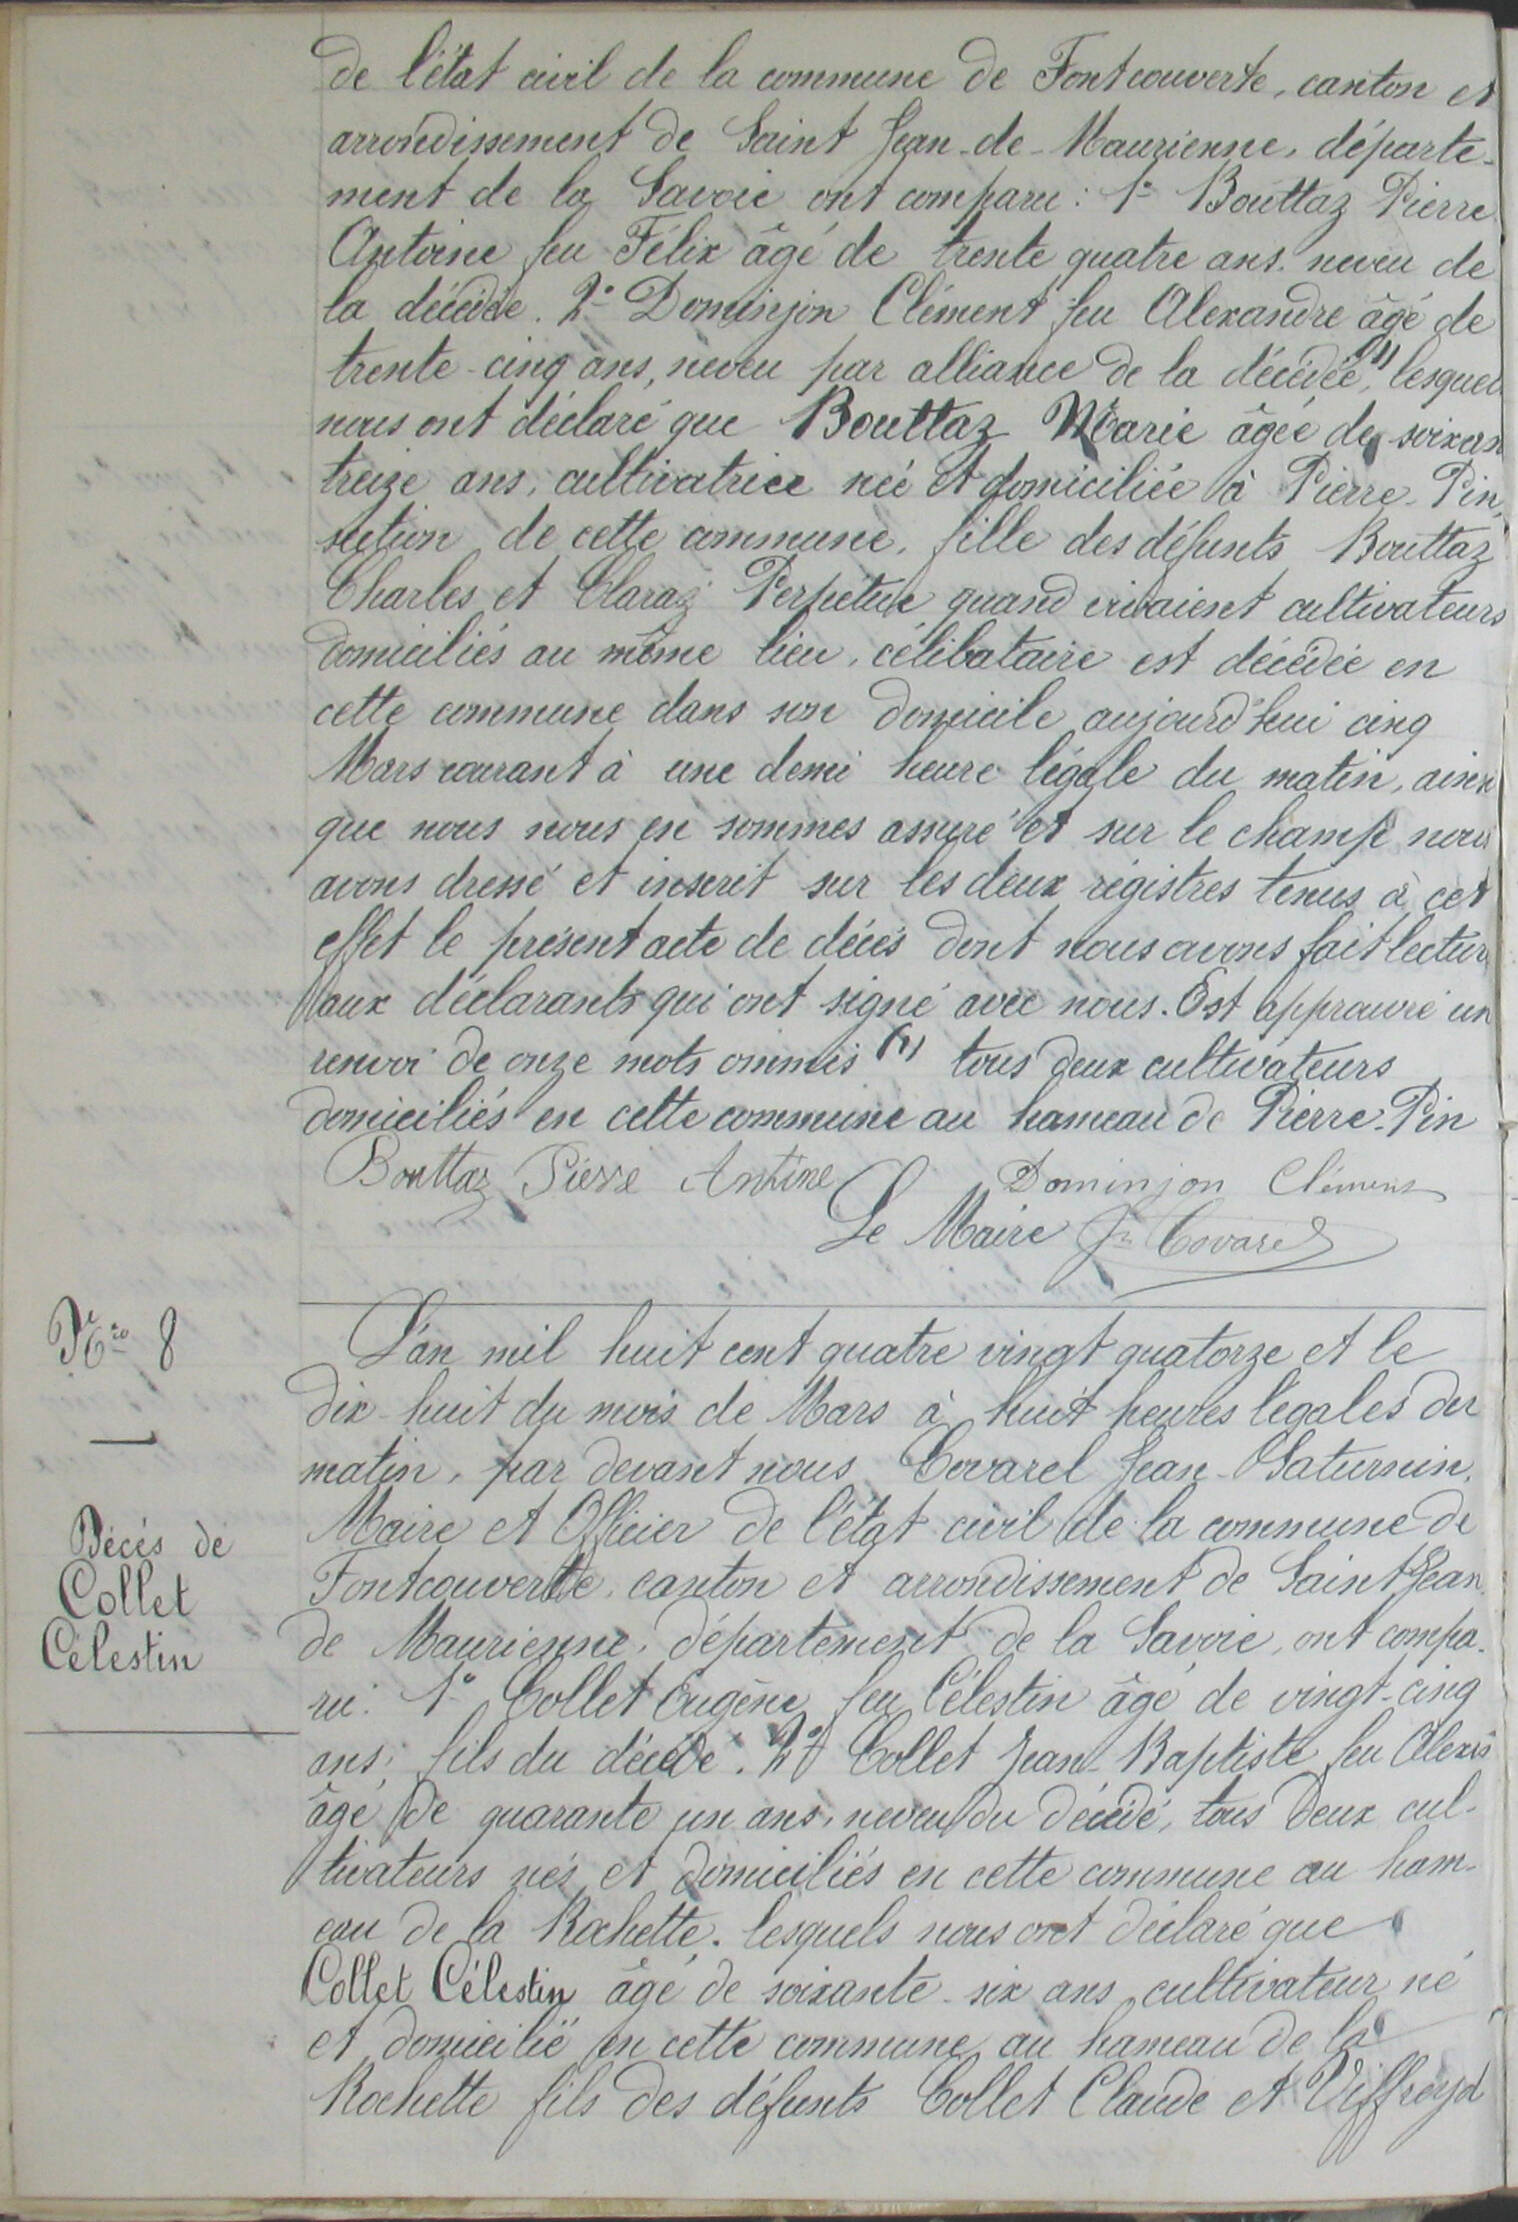 de l'état civil de la commune de Fontcouverte, canton et
arrondissement de Saint Jean-de-Maurienne, départe-
ment de la Savoie ont comparu : 1º Bouttaz Pierre
Antoine feu Félix âgé de trente quatre ans. neveu de
la décédée. 2º Dominjon Clément feu Alexandre âgé de
trente-cinq ans, neveu par alliance de la décédée, (1) lesquels
nous ont déclaré que Bouttaz Marie âgée de soixan
treize ans, cultivatrice née et domiciliée à Pierre-Pin,
section de cette commune, fille des défunts Bouttaz
Charles et Claraz Perpétue quand vivaient cultivateurs
domiciliés au même lieu, célibataire est décédée en
cette commune dans son domicile aujourd'hui cinq
Mars courant à une demi heure légale du matin, ainsi
que nous nous en sommes assuré et sur le champ nous
avons dressé et inscrit sur les deux régistres tenus à cet
effet le présent acte de décès dont nous avons fait lecture
aux déclarants qui ont signé avec nous. Est approuvé un
renvoi de onze mots ommis (1) tous deux cultivateurs
domiciliés en cette commune au hameau de Pierre-Pin
Bouttaz Pierre Antine Dominjon Clément
Le Maire Jn Covarel
Nro 8
Décès de
Collet
Célestin
L'an mil huit cent quatre vingt quatorze et le
dix-huit du mois de Mars à huit heures légales du
matin, par devant nous Covarel Jean-Saturnin,
Maire et Officier de l'état civil de la commune de
Fontcouverte, canton et arrondissement de Saint Jean
de Maurienne, département de la Savoie, ont compa-
ru : 1º Collet Eugène feu Célestin âgé de vingt-cinq
ans, fils du décédé. 2º Collet Jean-Baptiste feu Alexis
âgé de quarante un ans, neveu du décédé, tous deux cul-
tivateurs nés et domiciliés en cette commune au ham-
eau de la Rochette. lesquels nous ont déclaré que
Collet Célestin âgé de soixante-six ans cultivateur né
et domicilié en cette commune au hameau de la
Rochette fils des défunts Collet Claude et Viffreyd